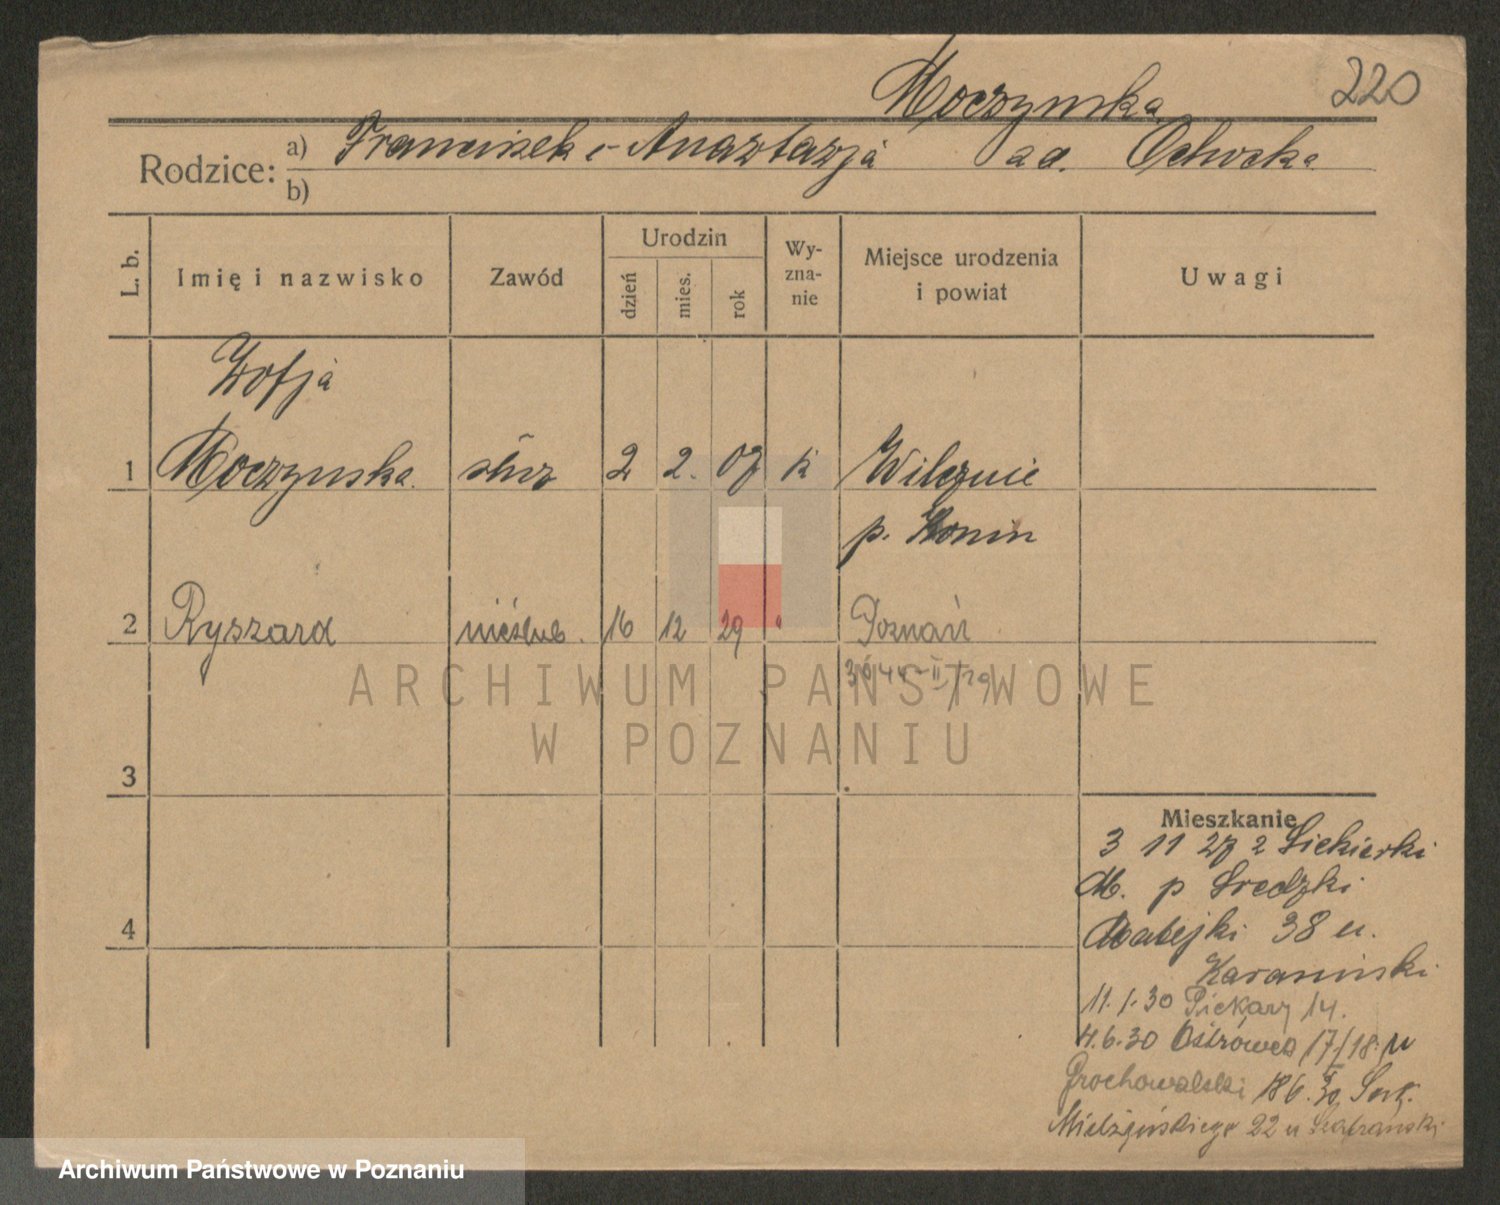 Moczynska 220
Rodzice: a) Franciszek i Anastazja
b)
L. b.
Imię i nazwisko
Zawód
Urodzin
dzień
mies.
rok
Wy-
zna-
nie
Miejsce urodzenia
i powiat
Uwagi
Zofja
1 Moczynska służ 2 2. 07 k Wilcznie
p. Konin
2 Ryszard nieślub. 16 12 29 " Poznań
3
4
Mieszkanie
3 11 27 z Siekierki
M. p Sredzki
Matejki 38 u.
Karaminski
11.1.30 Piekary 14.
4.6.30 Ostrówek 17/18 u
Grochowalski
Mielżyńskiego 22 u Szafranski
ARCHIWUM PAŃSTWOWE
W POZNANIU
Archiwum Państwowe w Poznaniu